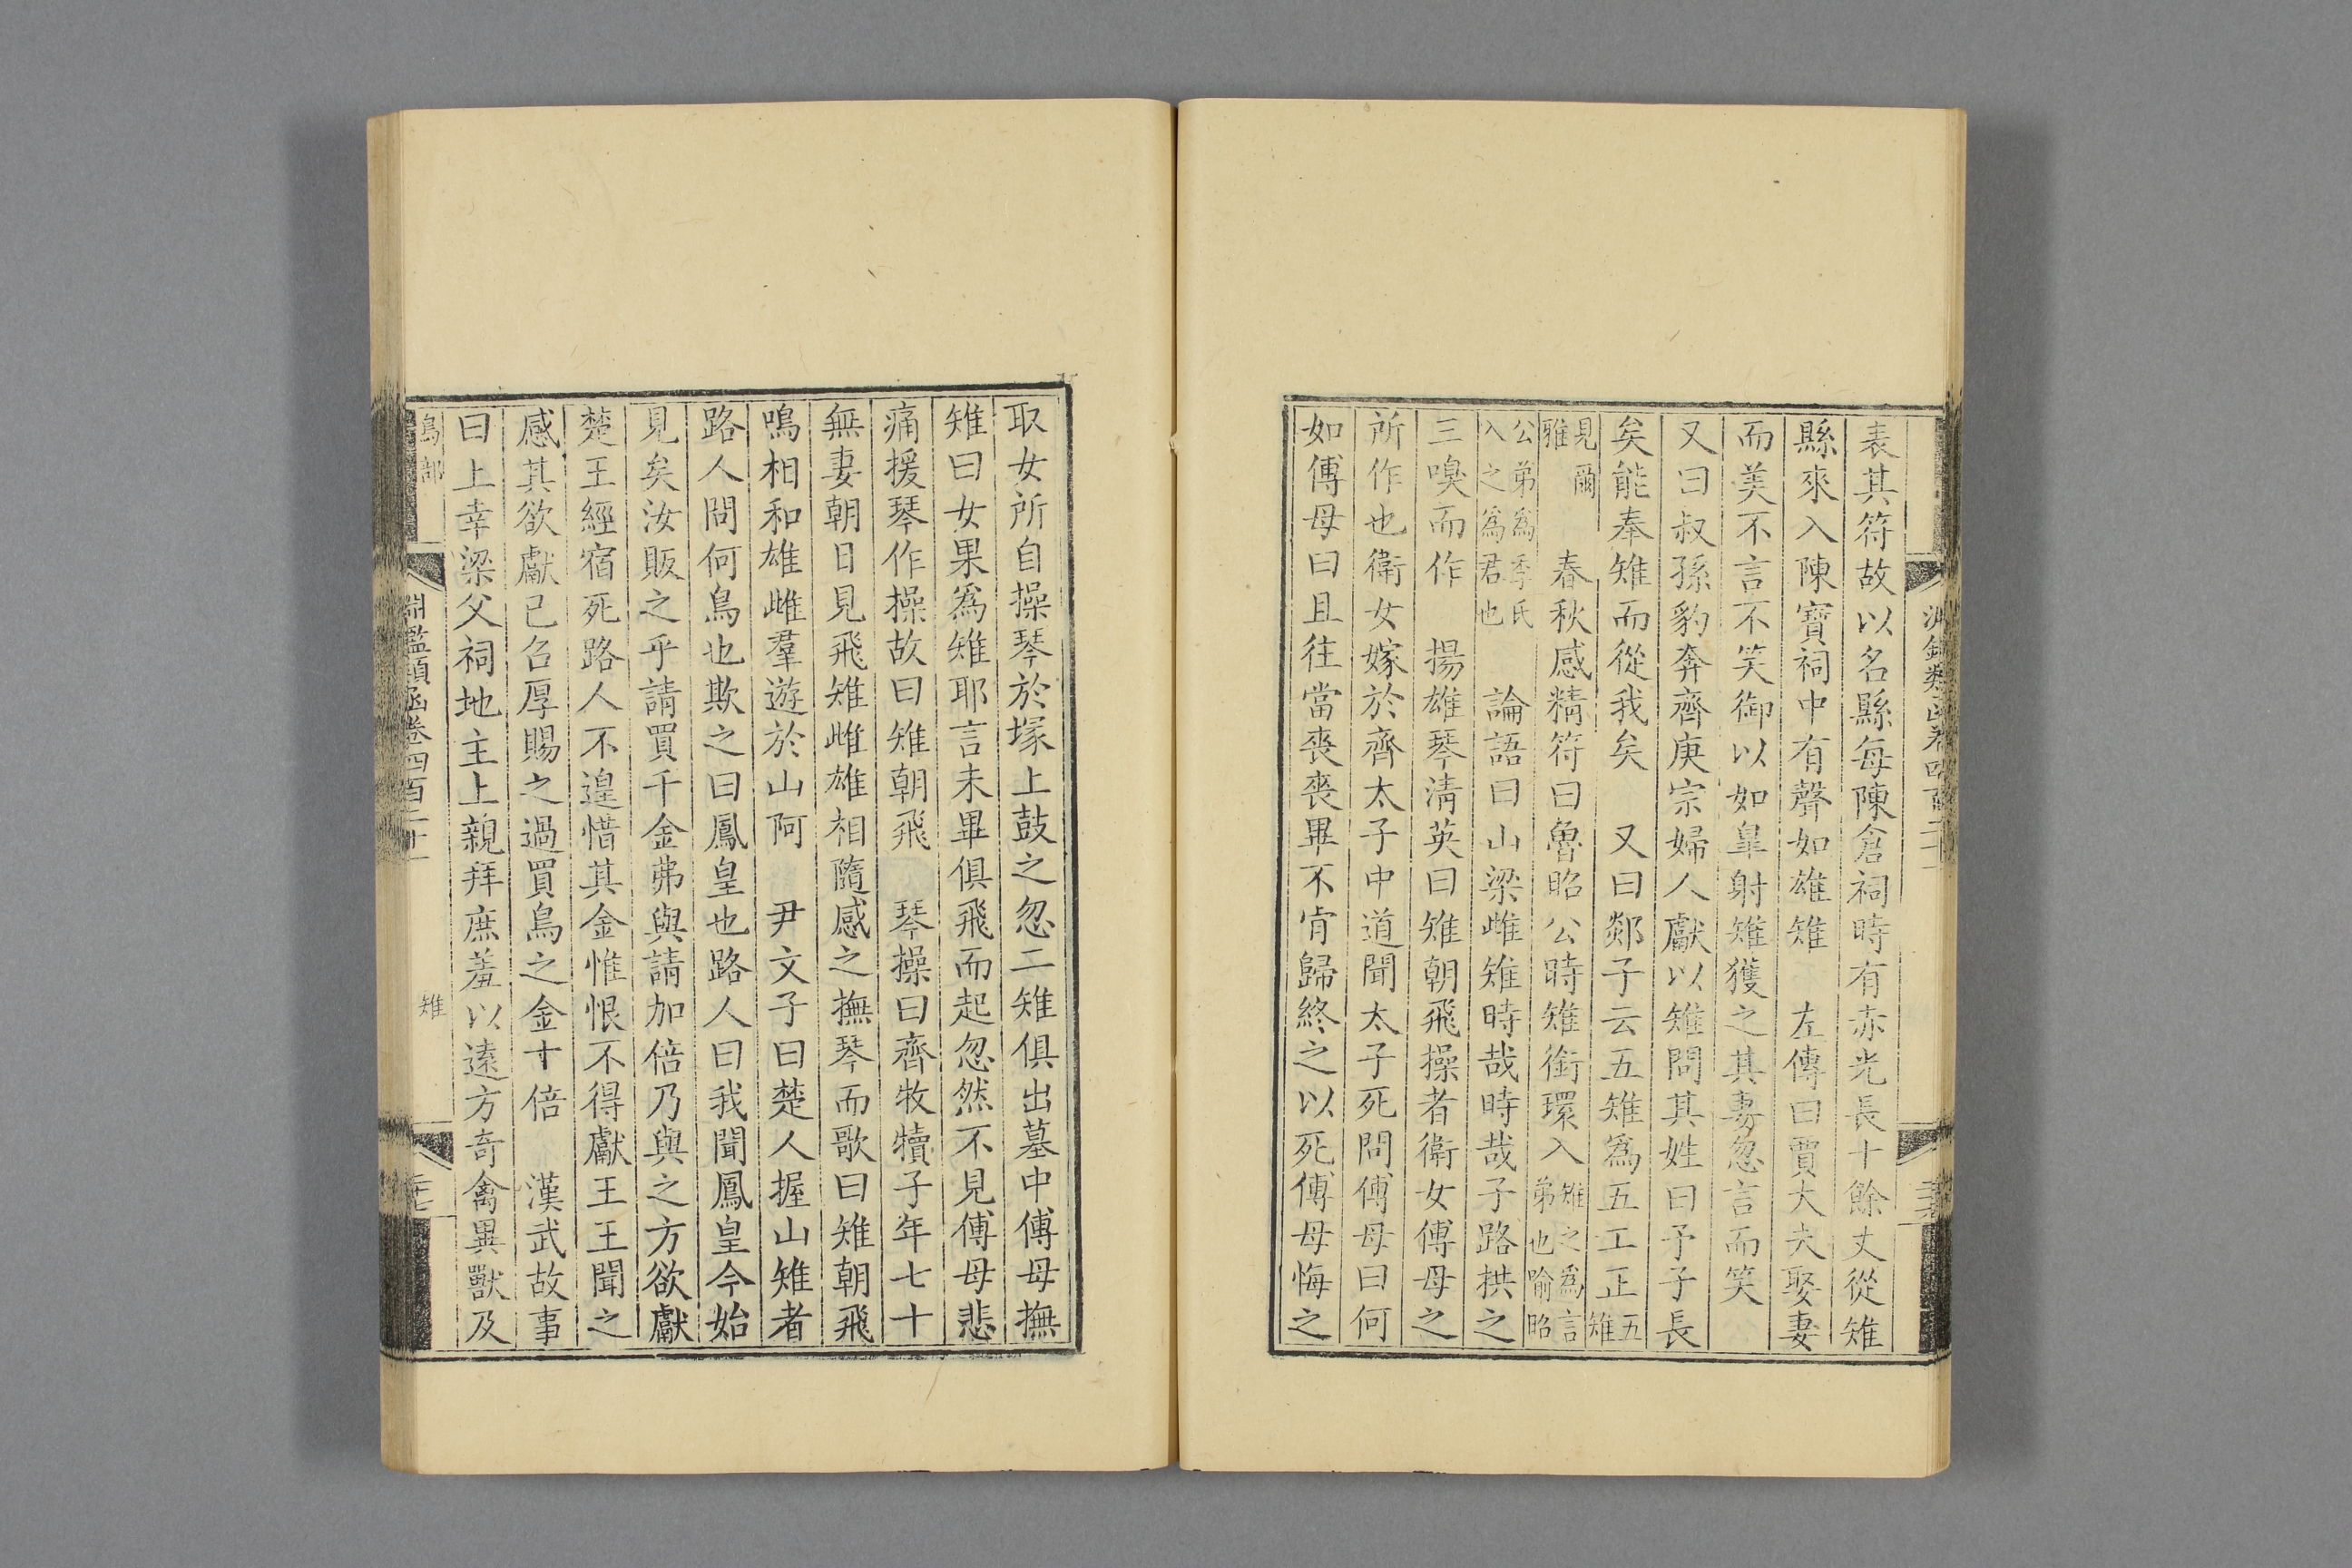 表其符故以名縣每陳倉祠時有赤光長十餘丈從雉
縣來入陳寶祠中有聲如雄雉　左傳曰賈大夫娶妻
而美不言不笑御以如臯射雉獲之其妻忽言而笑
又曰叔孫豹奔齊庚宗婦人獻以雉問其姓曰予子長
矣能奉雉而從我矣　又曰郯子云五雉爲五工正五雉
見爾雅　春秋感精符曰魯昭公時雉銜環入雉之爲言弟也喻昭
公弟爲季氏入之爲君也　論語曰山梁雌雉時哉時哉子路拱之
三嗅而作　揚雄琴清英曰雉朝飛操者衛女傅母之
所作也衛女嫁於齊太子中道聞太子死問傅母曰何
如傅母曰且往當喪喪畢不肯歸終之以死傅母悔之
取女所自操琴於塚上鼓之忽二雉俱出墓中傅母撫
雉曰女果爲雉耶言未畢俱飛而起忽然不見傅母悲
痛援琴作操故曰雉朝飛　琴操曰齊牧犢子年七十
無妻朝日見飛雉雌雄相隨感之撫琴而歌曰雉朝飛
鳴相和雄雌羣遊於山阿　尹文子曰楚人握山雉者
路人問何鳥也欺之曰鳳皇也路人曰我聞鳳皇今始
見矣汝販之乎請買千金弗與請加倍乃與之方欲獻
楚王經宿死路人不遑惜其金惟恨不得獻王王聞之
感其欲獻己召厚賜之過買鳥之金十倍　漢武故事
曰上幸梁父祠地主上親拜庶羞以遠方奇禽異獸及
鳥部
淵鑑類函卷四百二十一
雉